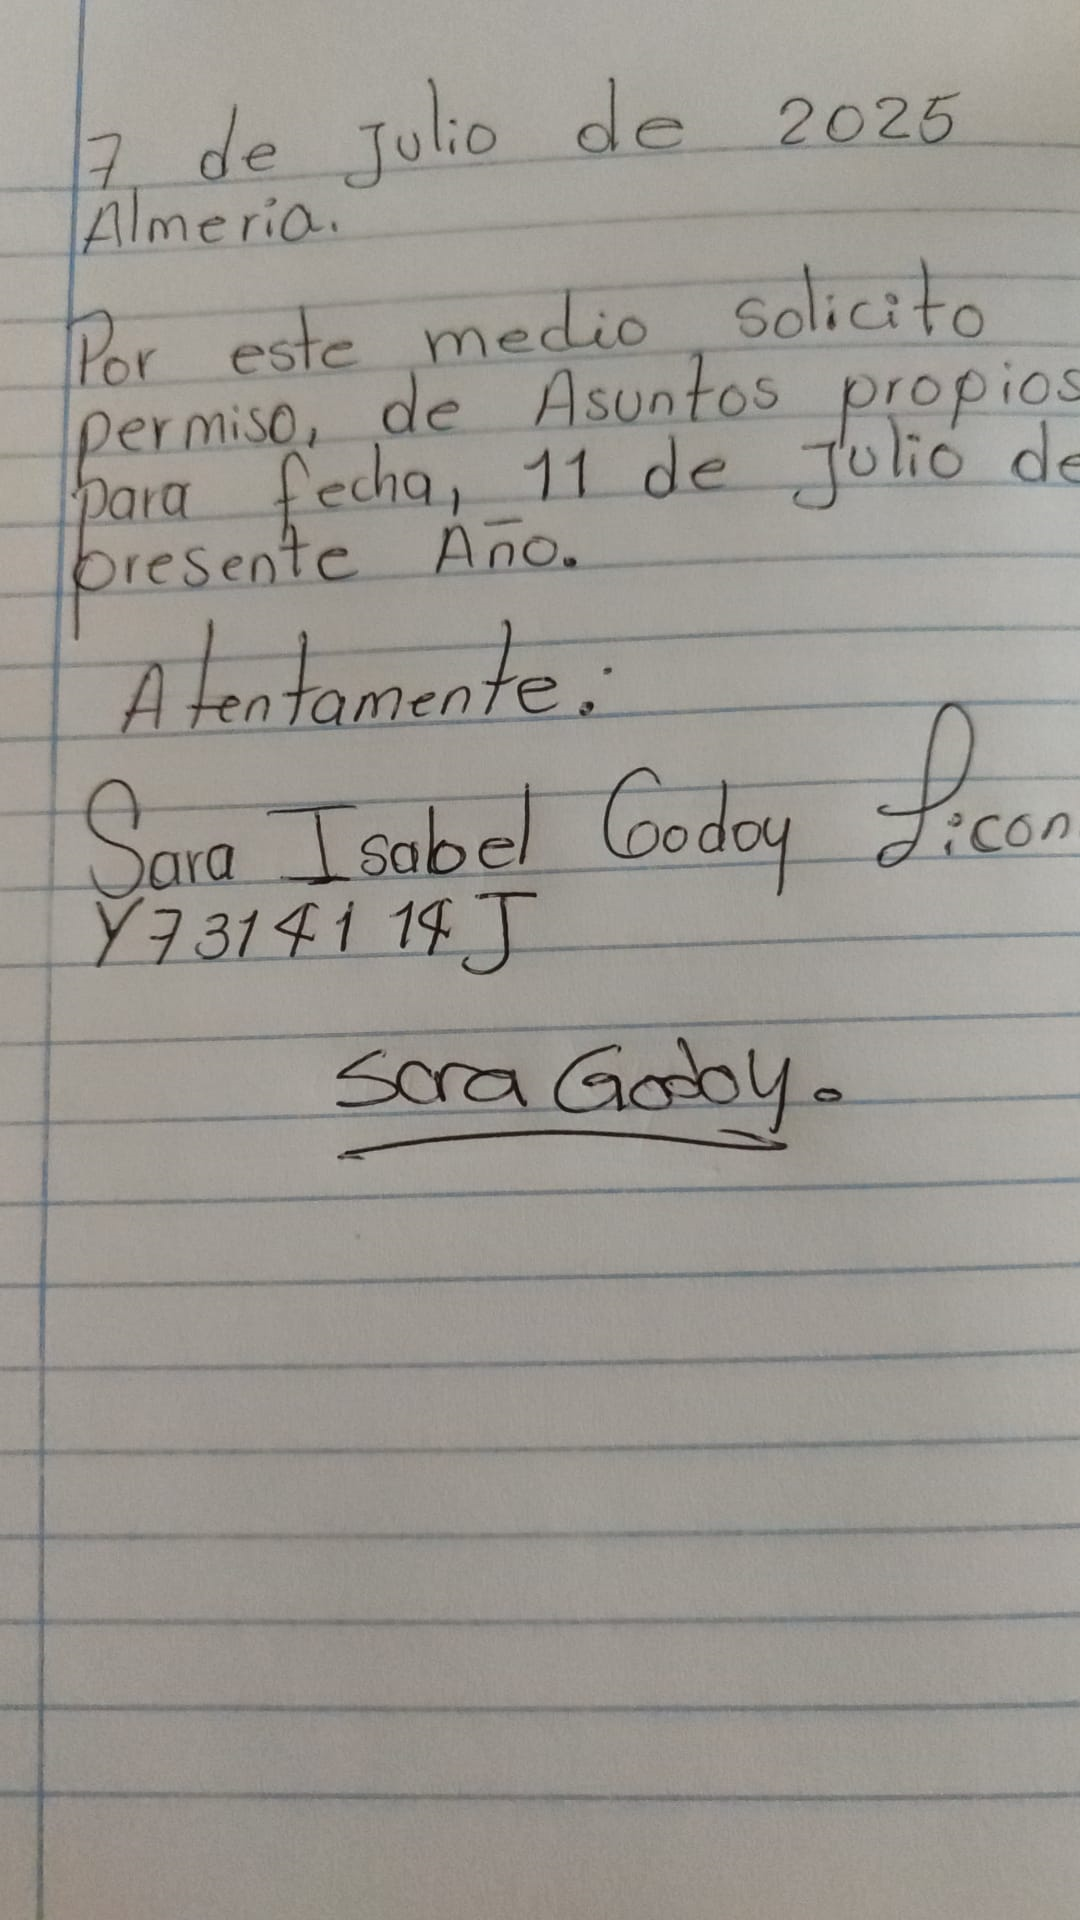 7 de Julio de 2025
Almeria.
Por este medio solicito
permiso, de Asuntos propios
para fecha, 11 de Julio de
presente Año.
Atentamente:
Sara Isabel Godoy Licon
Y7314114J
Sara Godoy.